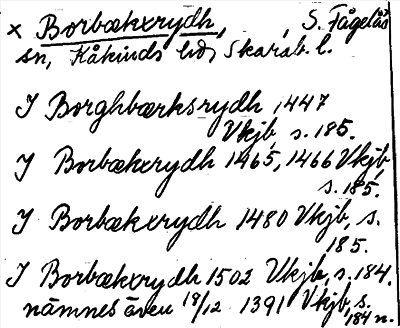 × Borbækxrydh, , S. Fågelås
sn, Kåkinds hd, Skarab. l.
I Borghbærksrydh 1447
Vkjb, s. 185.
I Borbækxrydh 1465, 1466 Vkjb,
s. 185.
I Borbækxrydh 1480 Vkjb, s.
185.
I Borbækxrydh 1502 Vkjb, s. 184.
nämnes även 18/12 1391 Vkjb, s.
184 n.